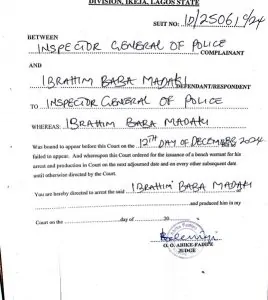 DIVISION, IKEJA, LAGOS STATE
SUIT NO:
BETWEEN
INSPECTOR GENERAL OF POLICE COMPLAINANT
AND
IBRAHIM BABA MADAKI DEFENDANT/RESPONDENT
TO INSPECTOR GENERAL OF POLICE
WHEREAS: IBRAHIM BABA MADAKI
Was bound to appear before this Court on the 12TH DAY OF DECEMBER 2024
failed to appear. And whereupon this Court ordered for the issuance of a bench warrant for his
arrest and production in Court on the next adjourned date and on every other subsequent date
until otherwise directed by the Court.
You are hereby directed to arrest the said IBRAHIM BABA MADAKI
and produced him in my
Court on the day of 20
O. O. ABIKE-FADIPE
JUDGE